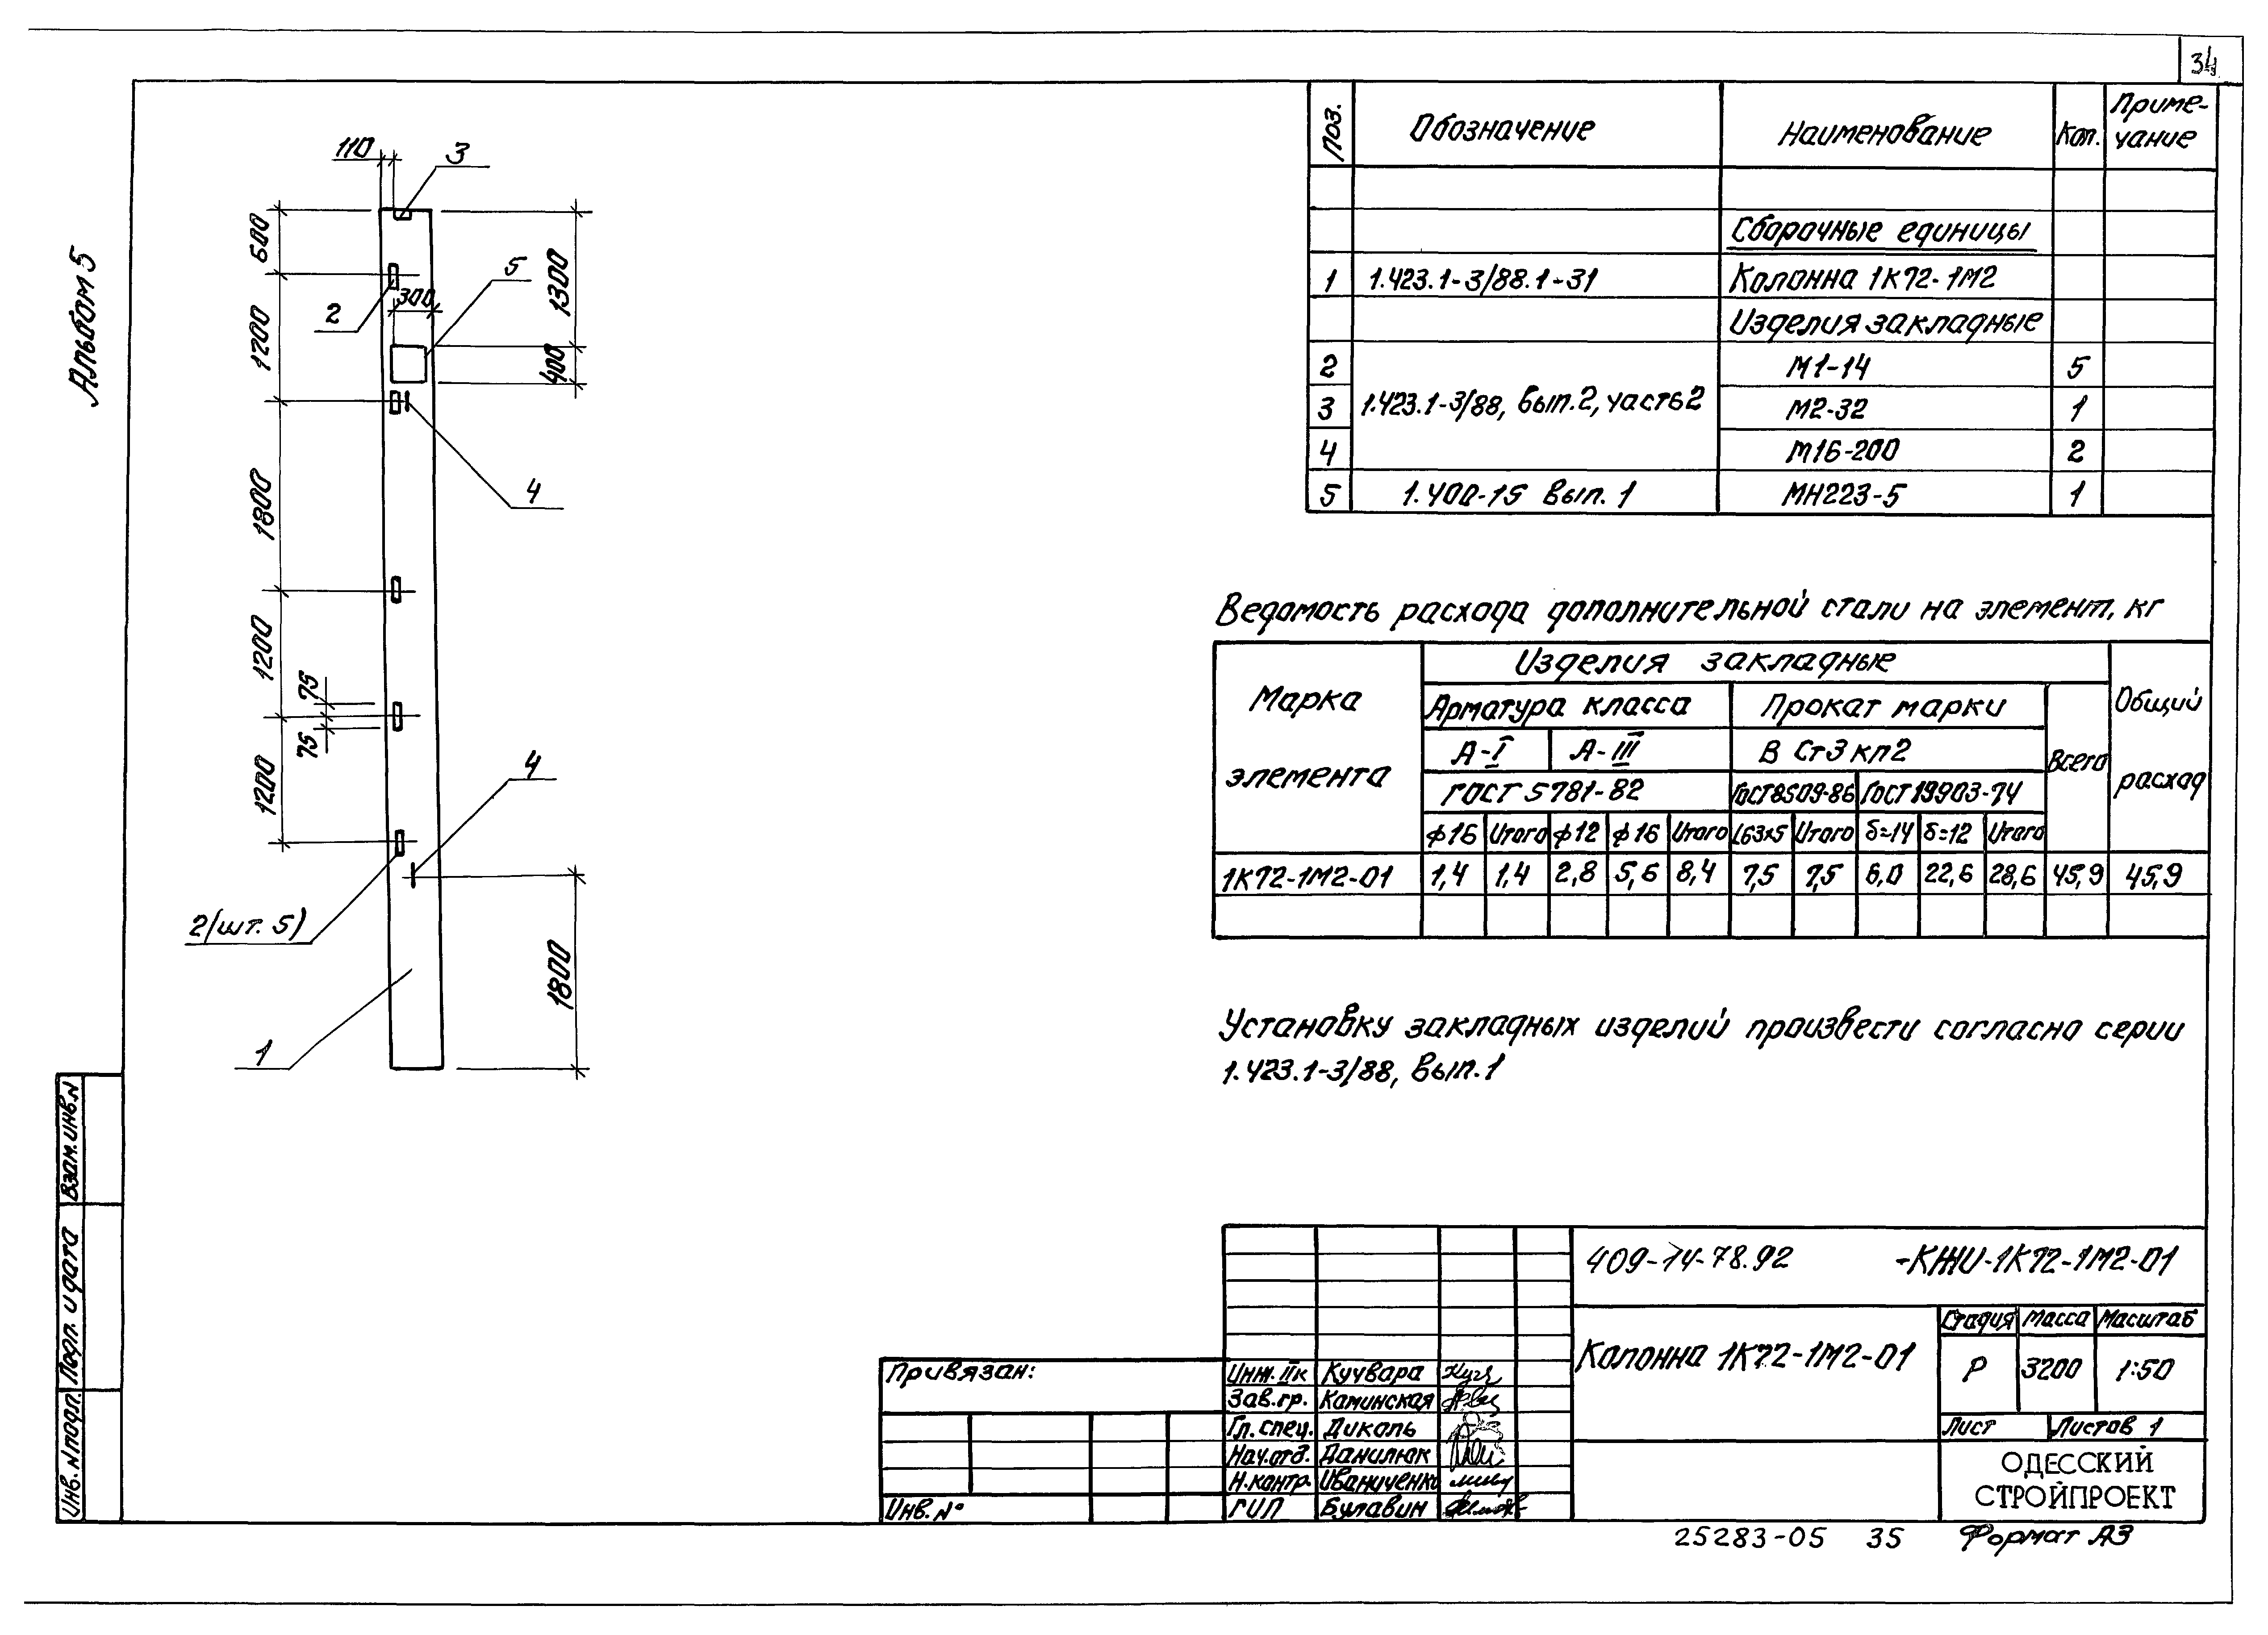 34
Альбом 5
110
3
600
1200
1800
1200
75
75
1200
300
2
5
1300
400
4
4
2(шт. 5)
1
1800
Поз. Обозначение Наименование Кол. Примечание
Сборочные единицы
1 1.423.1-3/88.1-31 Колонна 1К72-1М2
Изделия закладные
2 М1-14 5
3 1.423.1-3/88, вып.2, часть2 М2-32 1
4 М16-200 2
5 1.400-15 вып. 1 МН223-5 1
Ведомость расхода дополнительной стали на элемент, кг
Марка элемента
Изделия закладные
Общий расход
Арматура класса Прокат марки
Всего
А-I А-III В Ст3 кп2
ГОСТ 5781-82 ГОСТ8509-86 ГОСТ 19903-74
ф16 Итого ф12 ф16 Итого L63х5 Итого δ=14 δ=12 Итого
1К72-1М2-01 1,4 1,4 2,8 5,6 8,4 7,5 7,5 6,0 22,6 28,6 45,9 45,9
Установку закладных изделий произвести согласно серии
1.423.1-3/88, вып.1
Взам.инв.N
Подп. и дата
Инв.Nподл.
409-14-78.92 -КЖИ-1К72-1М2-01
Колонна 1К72-1М2-01
Стадия Масса Масштаб
Р 3200 1:50
Лист Листов 1
ОДЕССКИЙ
СТРОЙПРОЕКТ
Привязан:
Инв. №
Инж. IIк Кучвара
Зав.гр. Каминская
Гл.спец. Диколь
Нач.отд. Данилюк
Н.контр. Иваниченко
ГИП Булавин
25283-05 35 Формат А3